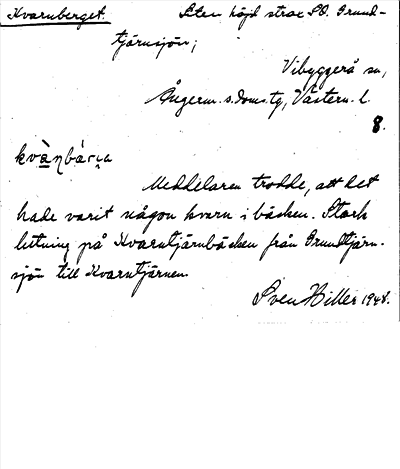 Kvarnberget. Liten höjd strax SO. Grund-
tjärnsjön;
Vibyggerå sn,
Ångerm. s. doms.tg, Västern. l.
8.
Meddelaren trodde, att det
hade varit någon kvarn i bäcken. Stark
lutning på Kvarntjärnbäcken från Grundtjärn-
sjön till Kvarntjärnen.
Sven Hillér 1948.